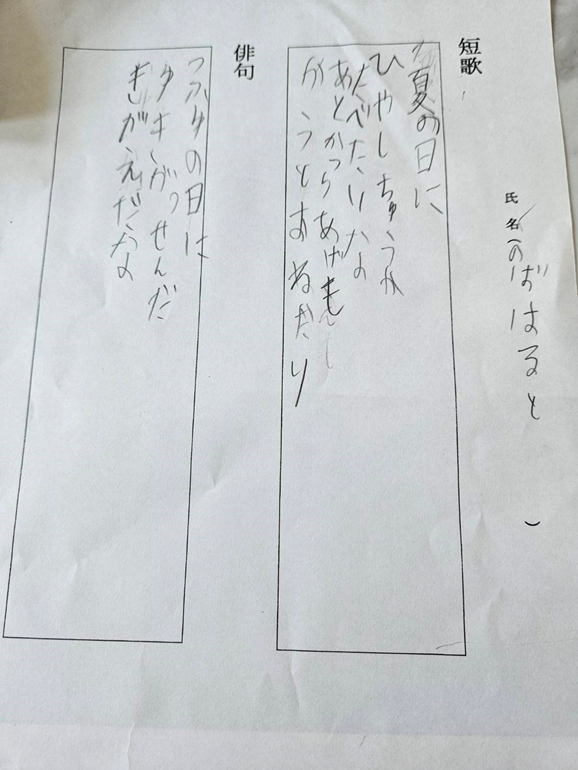 短歌
氏名(のばはると)
夏の日に
ひやしちゅうか
たべたいな
あとからあげも
かうとおねだり
俳句
つゆの日は
ゆきがっせんだ
きがえだなよ